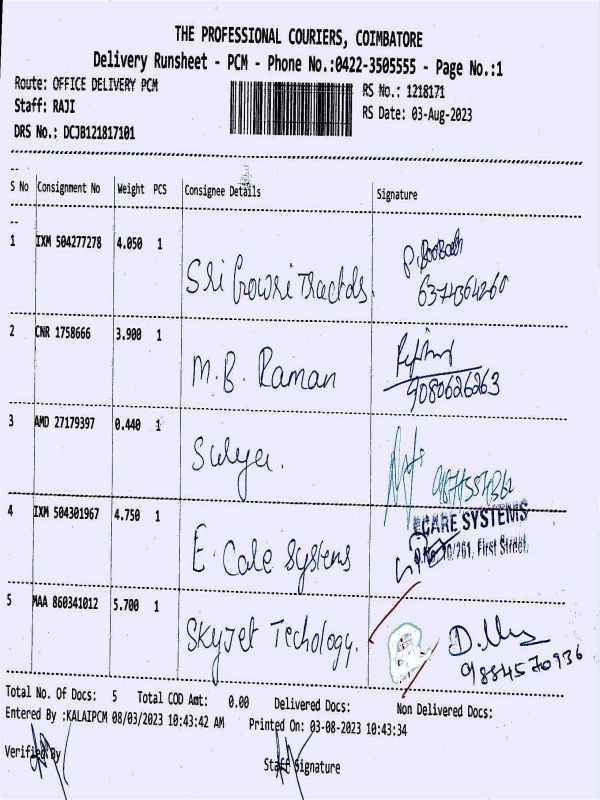 THE PROFESSIONAL COURIERS, COIMBATORE
Delivery Runsheet - PCM - Phone No.:0422-3505555 - Page No.:1
Route: OFFICE DELIVERY PCM
RS No.: 1218171
Staff: RAJI
RS Date: 03-Aug-2023
DRS No.: DCJB121817101
S No Consignment No Weight PCS Consignee Details Signature
1 IXM 504277278 4.050 1 Sri Gowri
6374364260
2 CNR 1758666 3.900 1 M.B. Raman
9080626263
3 AMD 27179397 0.440 1
4 IXM 504301967 4.750 1 E. Care Systems
ECARE SYSTEMS
First Street,
5 MAA 860341012 5.700 1 Skyjet Techology.
9884570936
Total No. Of Docs: 5 Total COD Amt: 0.00 Delivered Docs: Non Delivered Docs:
Entered By :KALAIPCM 08/03/2023 10:43:42 AM Printed On: 03-08-2023 10:43:34
Verified By
Staff Signature